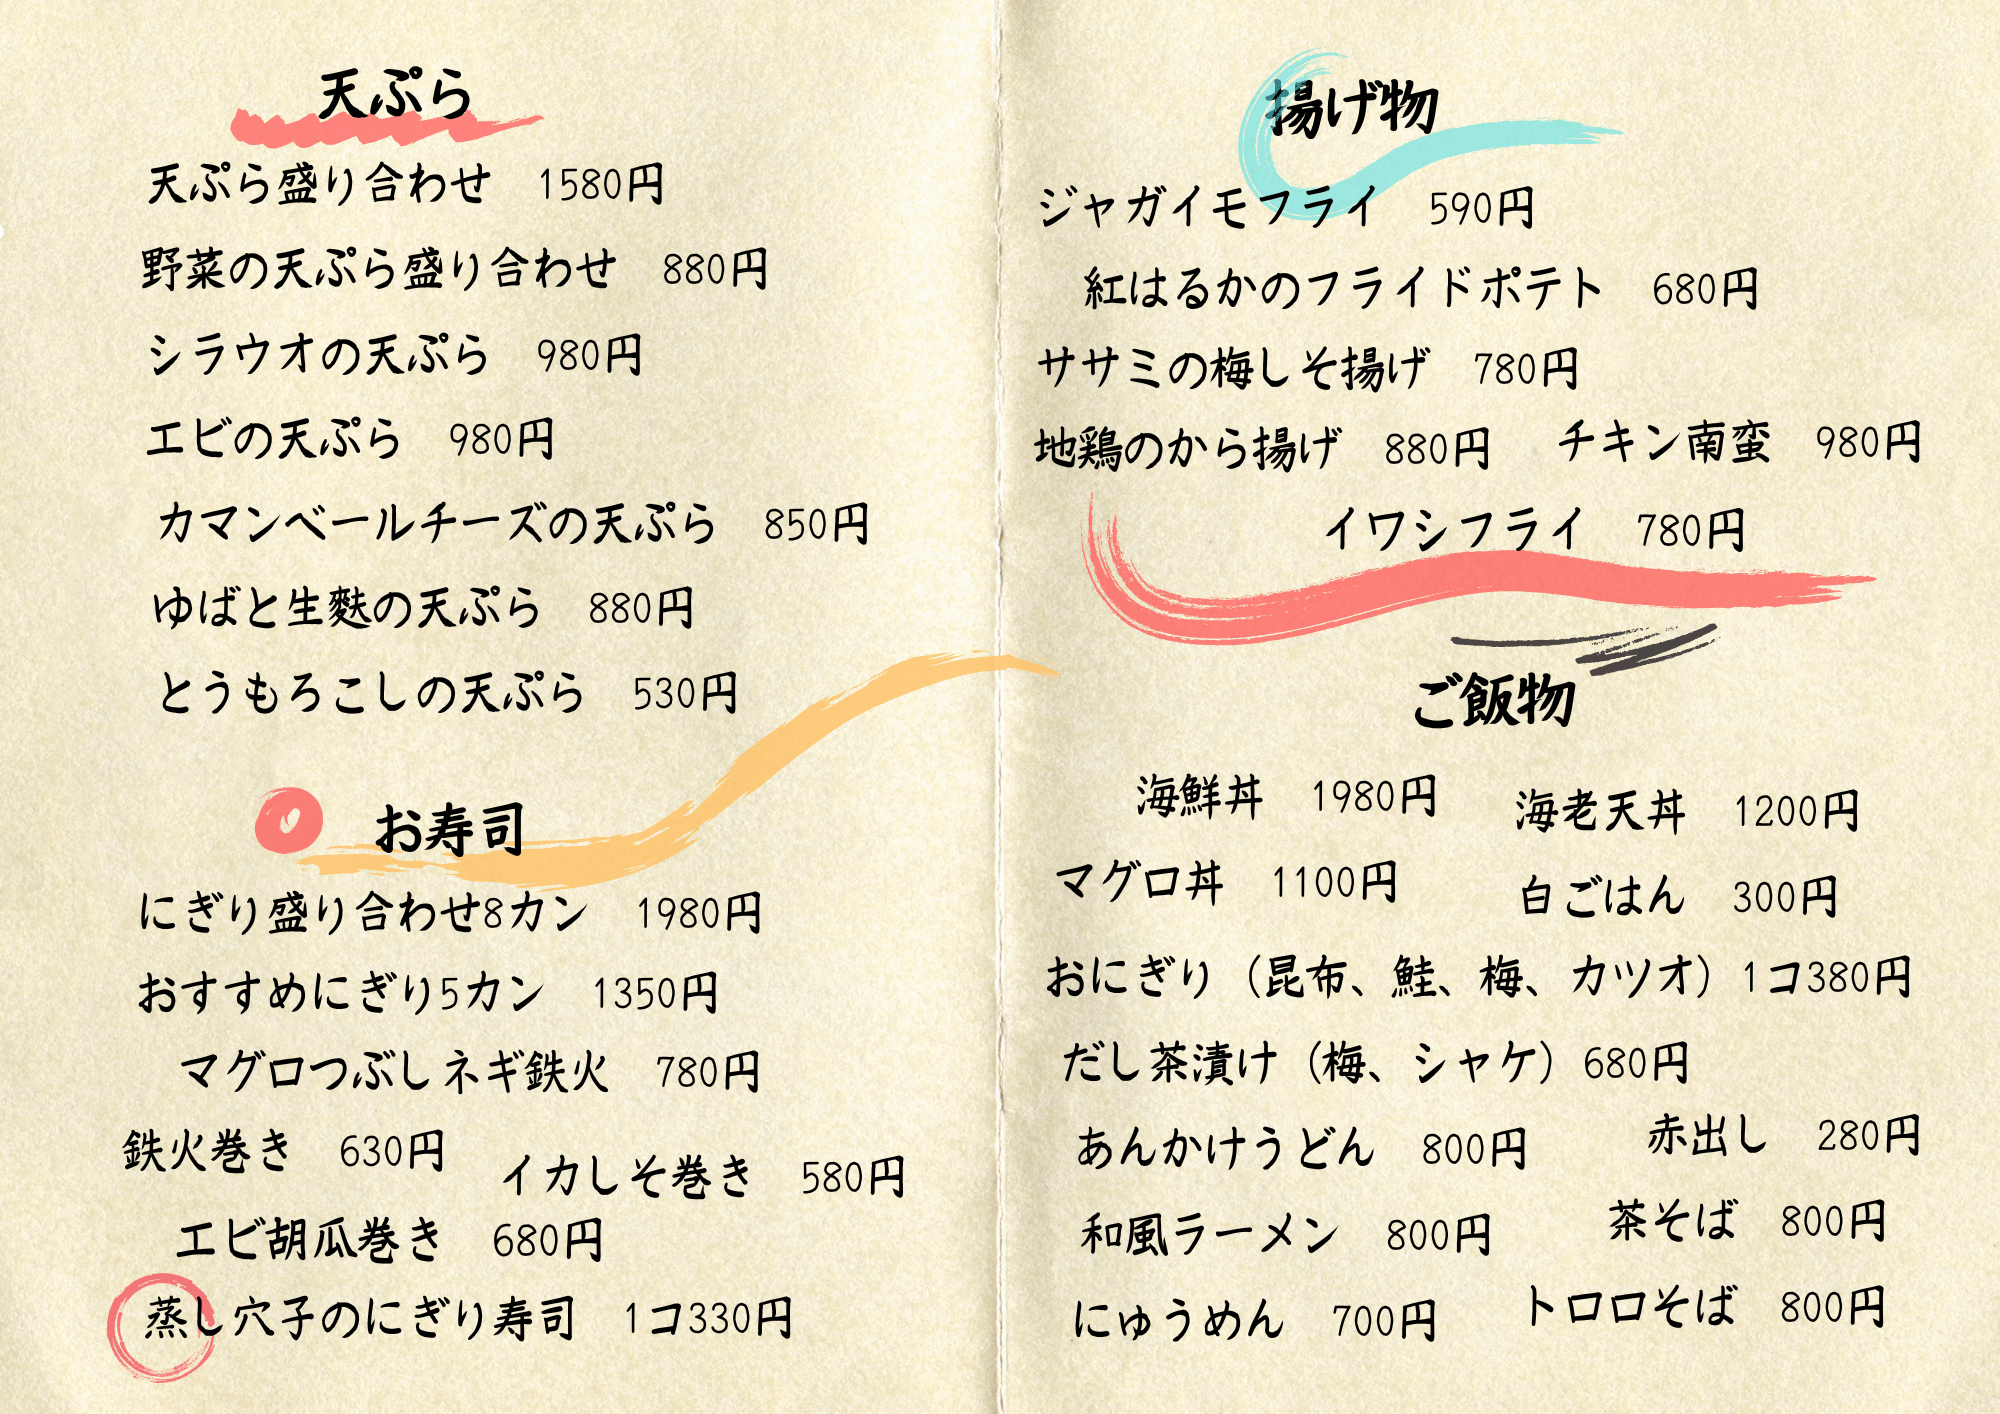 天ぷら
天ぷら盛り合わせ　1580円
野菜の天ぷら盛り合わせ　880円
シラウオの天ぷら　980円
エビの天ぷら　980円
カマンベールチーズの天ぷら　850円
ゆばと生麩の天ぷら　880円
とうもろこしの天ぷら　530円
お寿司
にぎり盛り合わせ8カン　1980円
おすすめにぎり5カン　1350円
マグロつぶしネギ鉄火　780円
鉄火巻き　630円
イカしそ巻き　580円
エビ胡瓜巻き　680円
蒸し穴子のにぎり寿司　1コ330円
揚げ物
ジャガイモフライ　590円
紅はるかのフライドポテト　680円
ササミの梅しそ揚げ　780円
地鶏のから揚げ　880円
チキン南蛮　980円
イワシフライ　780円
ご飯物
海鮮丼　1980円
海老天丼　1200円
マグロ丼　1100円
白ごはん　300円
おにぎり（昆布、鮭、梅、カツオ）1コ380円
だし茶漬け（梅、シャケ）680円
あんかけうどん　800円
赤出し　280円
和風ラーメン　800円
茶そば　800円
にゅうめん　700円
トロロそば　800円